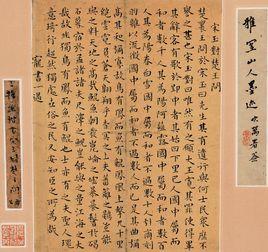 雅宜山人墨迹
宋玉對楚王問
楚襄王問於宋玉曰先生其有遺行與何士民眾庶不
譽之甚也宋玉對曰唯然有之願大王寬其罪使得畢
其辭客有歌於郢中者其始曰下里巴人國中屬而
和者數千人其為陽阿薤露國中屬而和者數百
人其為陽春白雪國中屬而和者不過數十人引商刻
羽雜以流徵國中屬而和者不過數人而已是其曲彌
高其和彌寡故鳥有鳳而魚有鯤鳳皇上擊九千里
絕雲霓負蒼天翱翔乎杳冥之上夫藩籬之鷃豈能
與之料天地之高哉鯤魚朝發崑崙之墟暴鬐於碣
石暮宿於孟諸夫尺澤之鯢豈能與之量江海之大
哉故非獨鳥有鳳而魚有鯤也士亦有之夫聖人瑰
意琦行超然獨處世俗之民又安知臣之所為哉
寵書一過